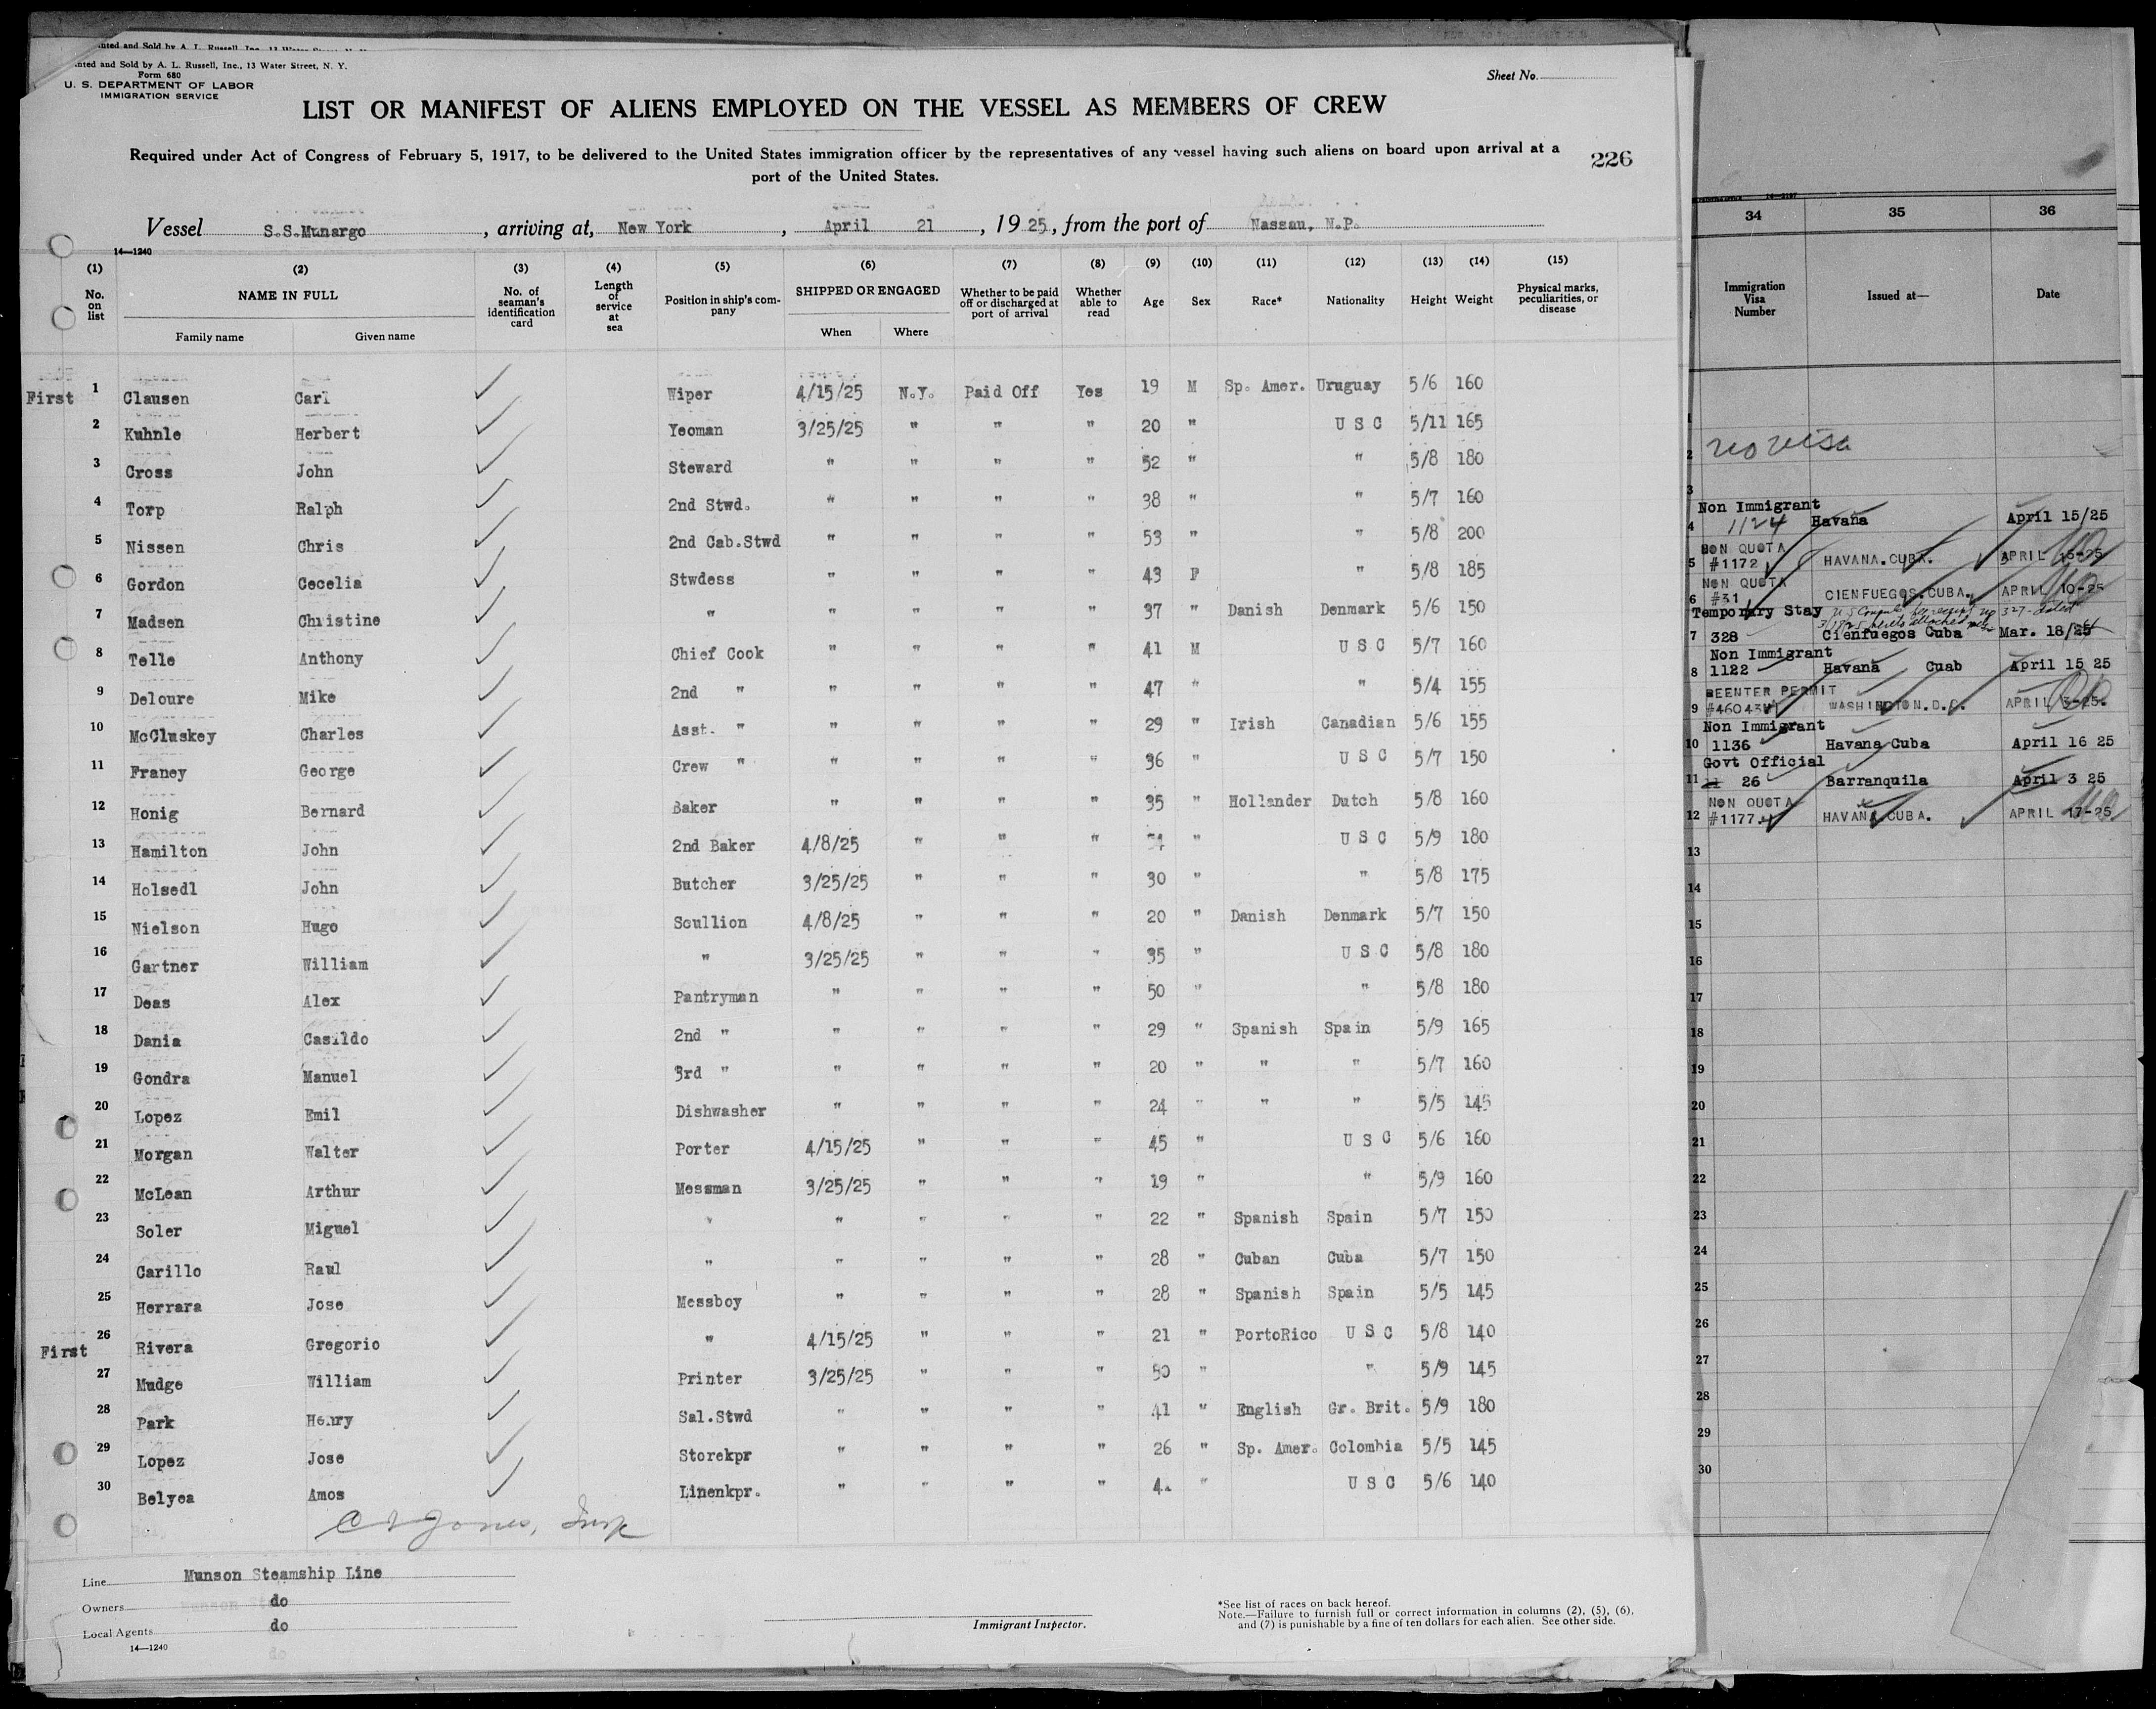 nted and Sold by A. L. Russell, Inc., 13 Water Street, N. Y.
Form 680
U. S. DEPARTMENT OF LABOR
IMMIGRATION SERVICE
Sheet No.
LIST OR MANIFEST OF ALIENS EMPLOYED ON THE VESSEL AS MEMBERS OF CREW
Required under Act of Congress of February 5, 1917, to be delivered to the United States immigration officer by the representatives of any vessel having such aliens on board upon arrival at a
port of the United States.
226
Vessel S.S.Munargo, arriving at, New York, April 21, 1925, from the port of Nassau, N.P.
14—1240
(1) (2) (3) (4) (5) (6) (7) (8) (9) (10) (11) (12) (13) (14) (15)
No. on list NAME IN FULL No. of seaman's identification card Length of service at sea Position in ship's company SHIPPED OR ENGAGED Whether to be paid off or discharged at port of arrival Whether able to read Age Sex Race* Nationality Height Weight Physical marks, peculiarities, or disease
Family name Given name When Where
First 1 Clausen Carl Wiper 4/15/25 N.Y. Paid Off Yes 19 M Sp. Amer. Uruguay 5/6 160
2 Kuhnle Herbert Yeoman 3/25/25 " " " 20 " U S C 5/11 165
3 Cross John Steward " " " " 52 " " 5/8 180
4 Torp Ralph 2nd Stwd. " " " " 38 " " 5/7 160
5 Nissen Chris 2nd Cab.Stwd " " " " 53 " " 5/8 200
6 Gordon Cecelia Stwdess " " " " 43 F " 5/8 185
7 Madsen Christine " " " " " 37 " Danish Denmark 5/6 150
8 Telle Anthony Chief Cook " " " " 41 M U S C 5/7 160
9 Deloure Mike 2nd " " " " " 47 " " 5/4 155
10 McCluskey Charles Asst. " " " " " 29 " Irish Canadian 5/6 155
11 Franey George Crew " " " " " 36 " U S C 5/7 150
12 Honig Bernard Baker " " " " 35 " Hollander Dutch 5/8 160
13 Hamilton John 2nd Baker 4/8/25 " " " " U S C 5/9 180
14 Holsedl John Butcher 3/25/25 " " " 30 " " 5/8 175
15 Nielson Hugo Scullion 4/8/25 " " " 20 " Danish Denmark 5/7 150
16 Gartner William " 3/25/25 " " " 35 " U S C 5/8 180
17 Deas Alex Pantryman " " " " 50 " " 5/8 180
18 Dania Casildo 2nd " " " " " 29 " Spanish Spain 5/9 165
19 Gondra Manuel 3rd " " " " " 20 " " " 5/7 160
20 Lopez Emil Dishwasher " " " " 24 " " " 5/5 145
21 Morgan Walter Porter 4/15/25 " " " 45 " U S C 5/6 160
22 McLean Arthur Messman 3/25/25 " " " 19 " " 5/9 160
23 Soler Miguel " " " " " 22 " Spanish Spain 5/7 150
24 Carillo Raul " " " " " 28 " Cuban Cuba 5/7 150
25 Herrara Jose Messboy " " " " 28 " Spanish Spain 5/5 145
First 26 Rivera Gregorio " 4/15/25 " " " 21 " PortoRico U S C 5/8 140
27 Mudge William Printer 3/25/25 " " " " " 5/9 145
28 Park Henry Sal.Stwd " " " " 41 " English Gr. Brit. 5/9 180
29 Lopez Jose Storekpr " " " " 26 " Sp. Amer. Colombia 5/5 145
30 Belyea Amos Linenkpr. " " " " " U S C 5/6 140
Jones, Insp
Line Munson Steamship Line
Owners do
Local Agents do
14—1240
Immigrant Inspector.
*See list of races on back hereof.
Note.—Failure to furnish full or correct information in columns (2), (5), (6),
and (7) is punishable by a fine of ten dollars for each alien. See other side.
34 35 36
Immigration Visa Number Issued at— Date
1
2 no visa
3
Non Immigrant
4 1124 Havana April 15/25
NON QUOTA
5 #1172 HAVANA.CUBA. APRIL 15-25
NON QUOTA
6 #31 CIENFUEGOS.CUBA. APRIL 10-25
Temporary Stay
7 328 Cienfuegos Cuba Mar. 18/25
Non Immigrant
8 1122 Havana Cuab April 15 25
REENTER PERMIT
9 WASHINGTON.D.C. APRIL 3-25.
Non Immigrant
10 1136 Havana Cuba April 16 25
Govt Official
11 26 Barranquila April 3 25
NON QUOTA
12 #1177 HAVANA CUBA. APRIL 17-25
13
14
15
16
17
18
19
20
21
22
23
24
25
26
27
28
29
30